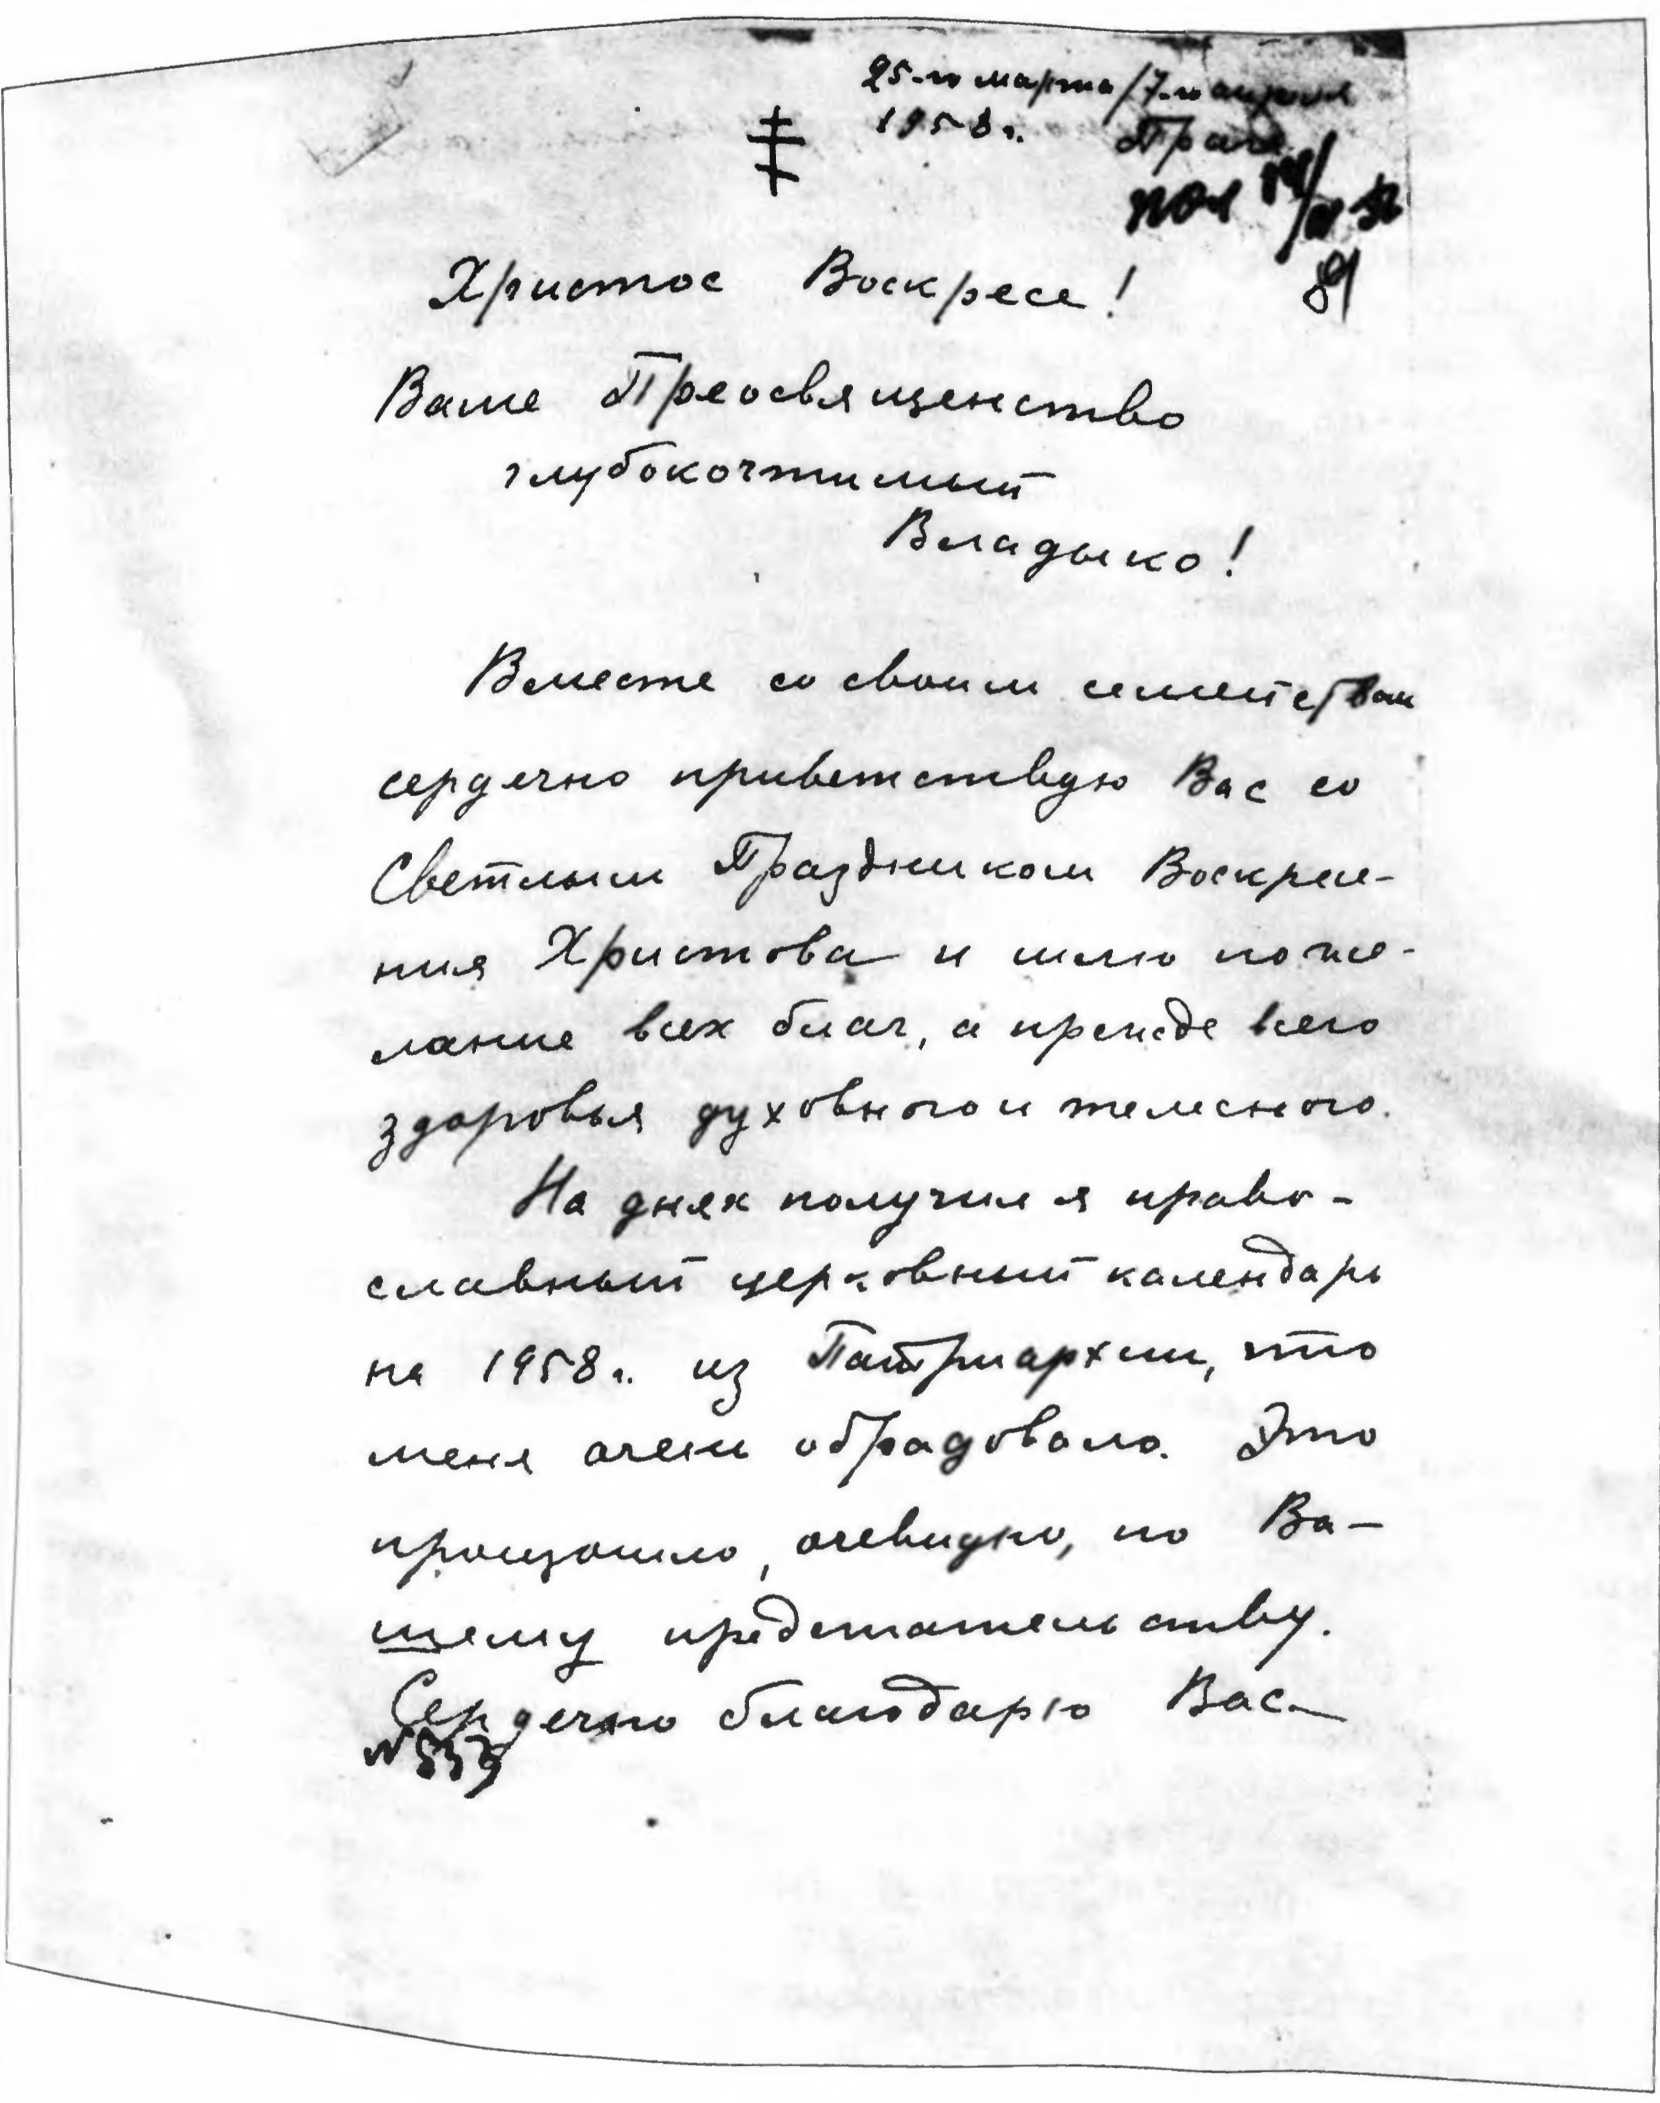 25-го марта / 7-го апреля
1958 г. Прага
пол
81
Христос Воскресе!
Ваше Преосвященство
глубокочтимый
Владыко!
Вместе со своим семейством
сердечно приветствую Вас со
Светлым Праздником Воскресе-
ния Христова и шлю поже-
лание всех благ, а прежде всего
здоровья духовного и телесного.
На днях получил я право-
славный церковный календарь
на 1958 г. из Патриархии, что
меня очень обрадовало. Это
произошло, очевидно, по Ва-
шему предстательству.
Сердечно благодарю Вас